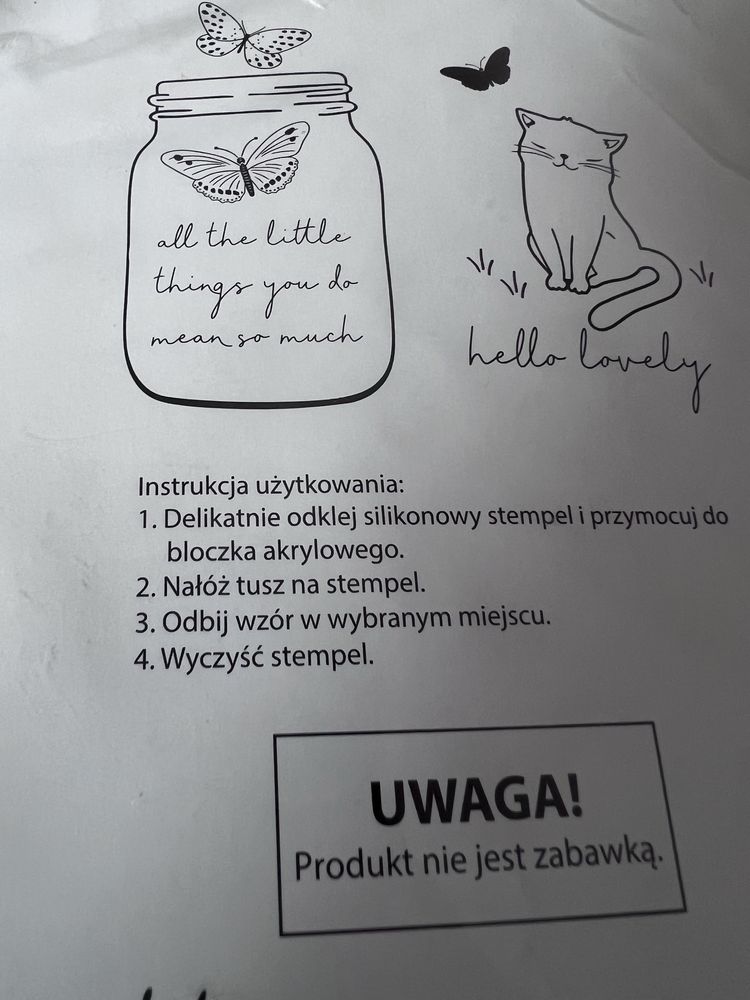 all the little
things you do
mean so much
hello lovely
Instrukcja użytkowania:
1. Delikatnie odklej silikonowy stempel i przymocuj do
bloczka akrylowego.
2. Nałóż tusz na stempel.
3. Odbij wzór w wybranym miejscu.
4. Wyczyść stempel.
UWAGA!
Produkt nie jest zabawką.